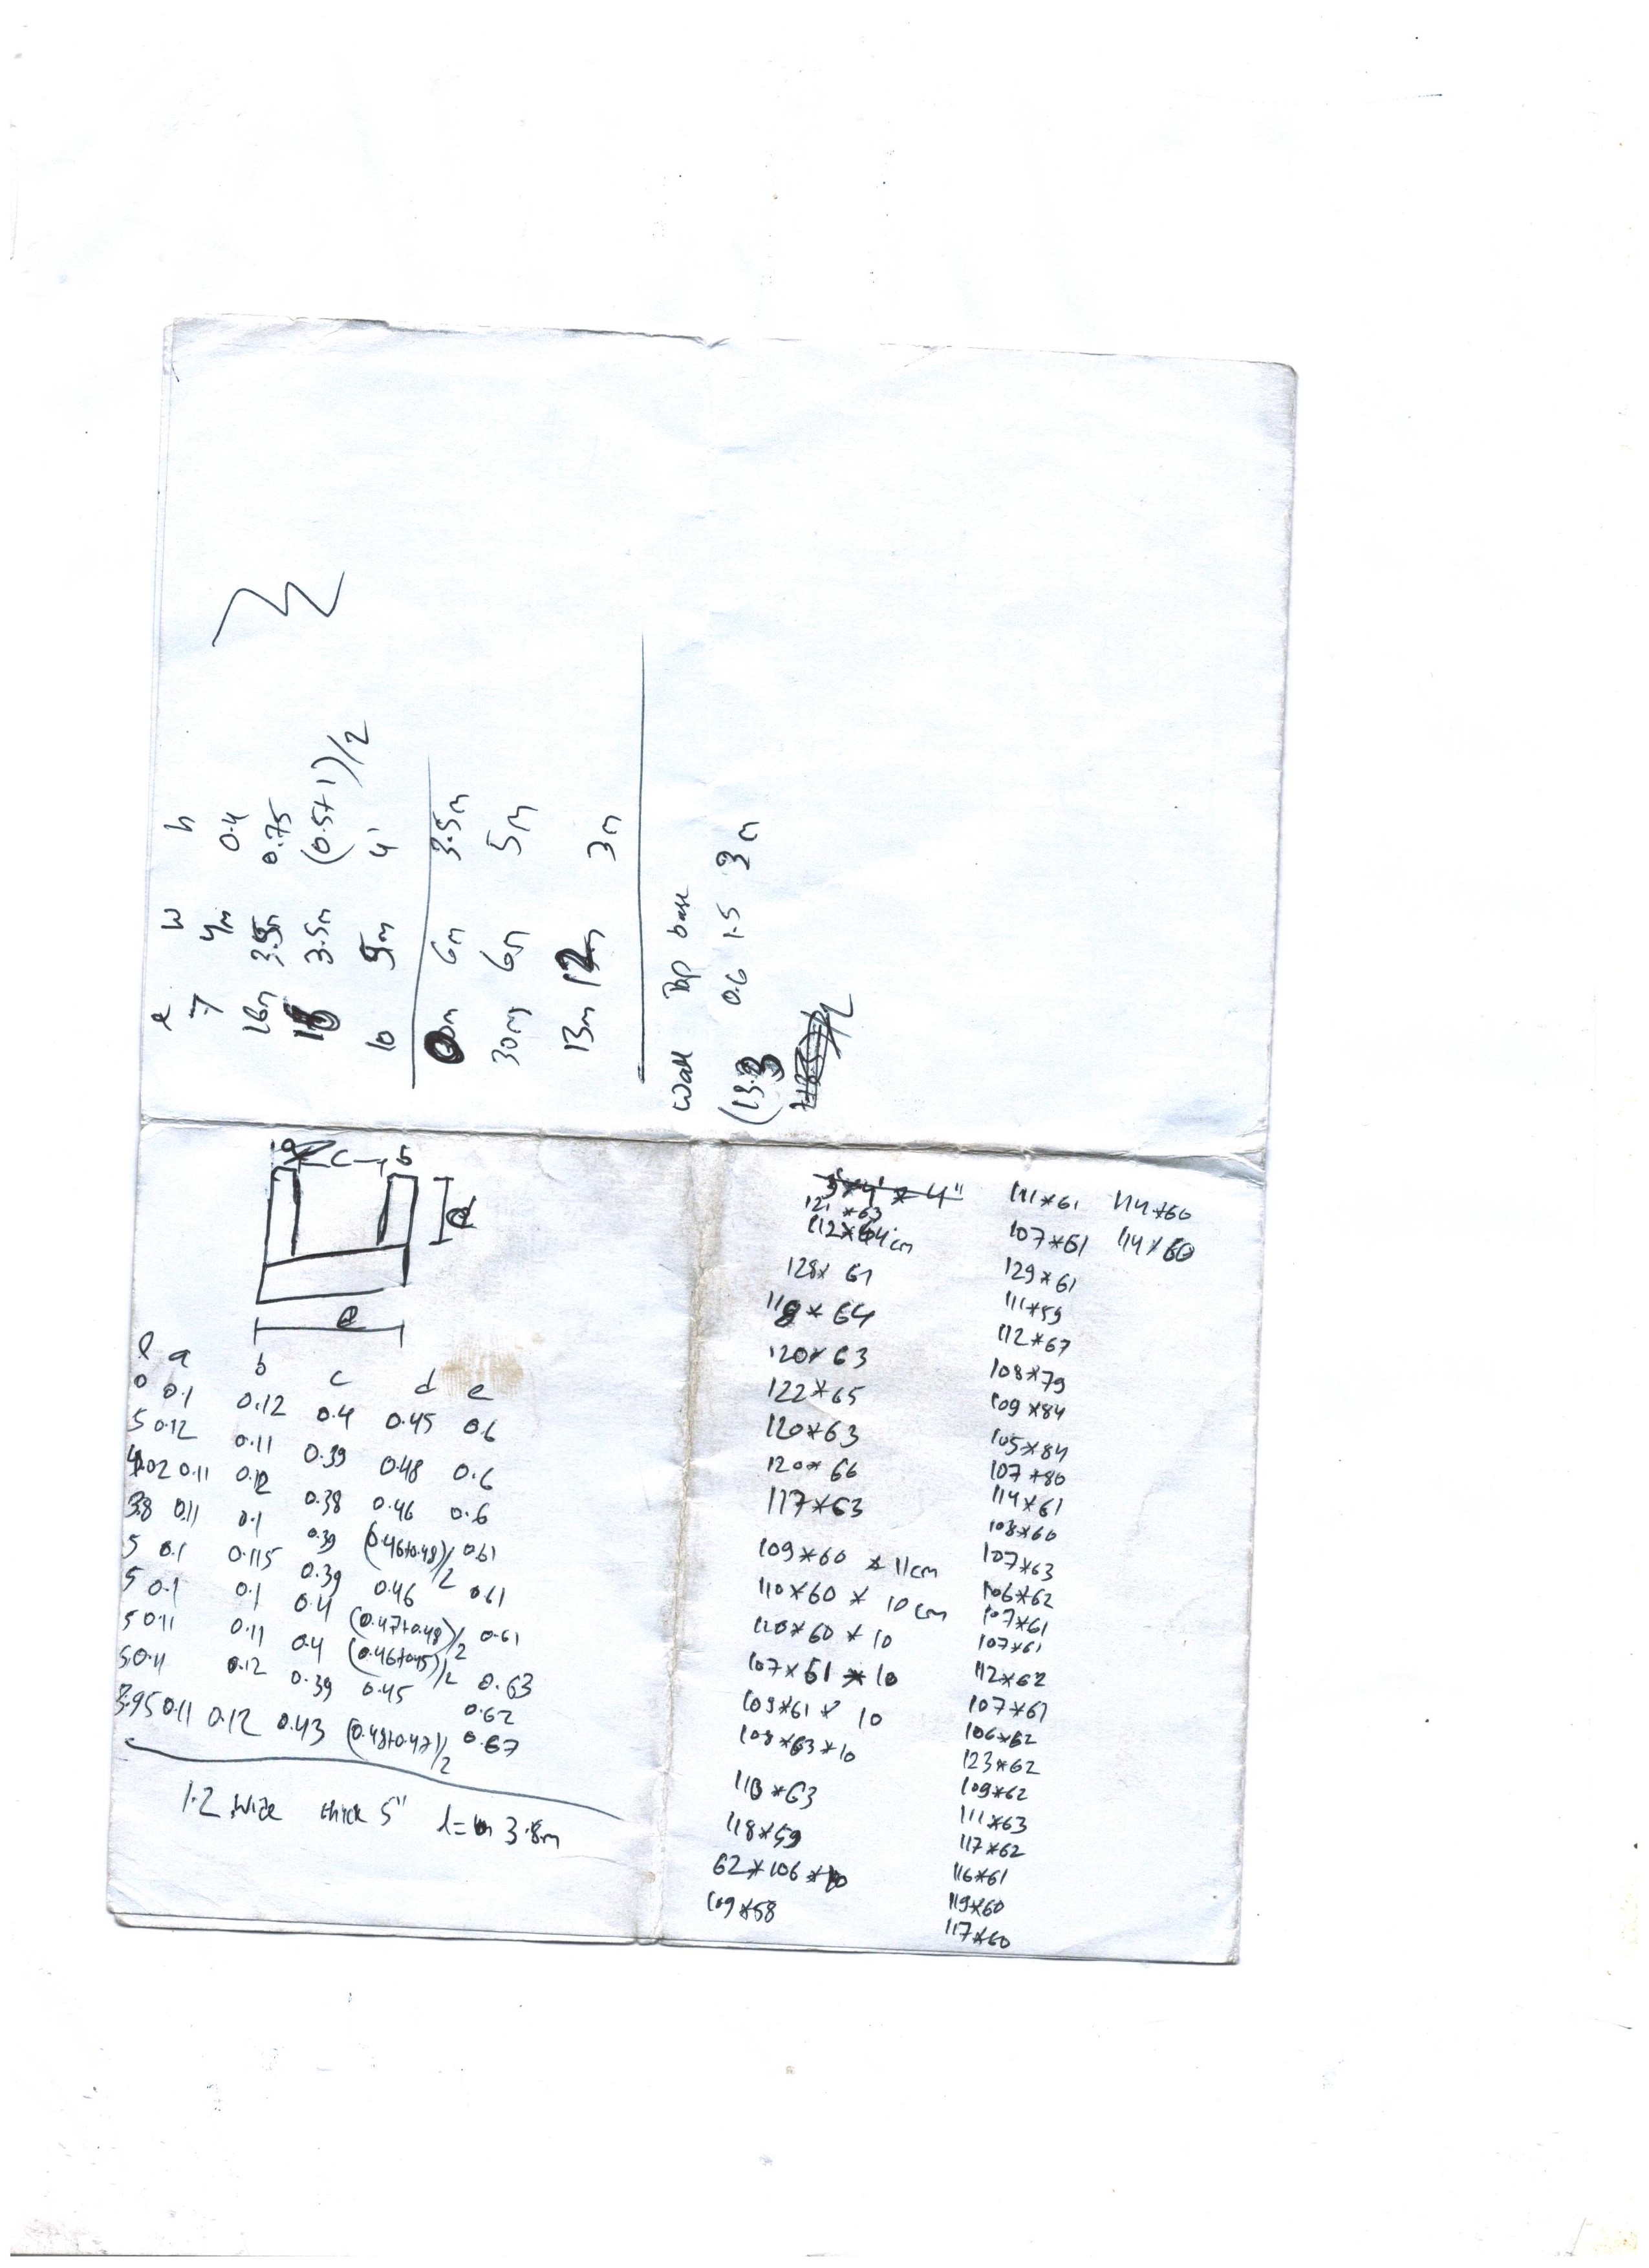 l w h
7 4m 0.4
16m 3.5m 0.75
3.5m (0.5+1)/2
10 5m 4'
6m 3.5m
30m 6m 5m
13m 12m 3m
Wall Top base
0.6 1.5 3m
a c b
d
e
l a b c d e
0 0.1 0.12 0.4 0.45 0.6
5 0.12 0.11 0.39 0.48 0.6
4.02 0.11 0.12 0.38 0.46 0.6
3.8 0.11 0.1 0.39 (0.46+0.48)/2 0.61
5 0.1 0.115 0.39 0.46 0.61
5 0.1 0.1 0.4 (0.47+0.48)/2 0.61
5 0.11 0.11 0.4 (0.46+0.45)/2 0.63
5 0.11 0.12 0.39 0.45 0.62
3.95 0.11 0.12 0.43 (0.48+0.47)/2 0.67
1.2 wide thick 5" l= 3.8m
121*63
112*64cm
128* 61
118* 64
120* 63
122*65
120*63
120* 66
117*63
109*60 * 11cm
110*60 * 10cm
120*60 * 10
107*61 * 10
109*61 * 10
108*63*10
110*63
118*59
62*106*10
109*58
111*61
107*61
129*61
111*59
112*67
108*79
109*84
105*84
107*80
114*61
108*60
107*63
106*62
107*61
107*61
112*62
107*61
106*62
123*62
109*62
111*63
117*62
116*61
119*60
117*60
114*60
114*60